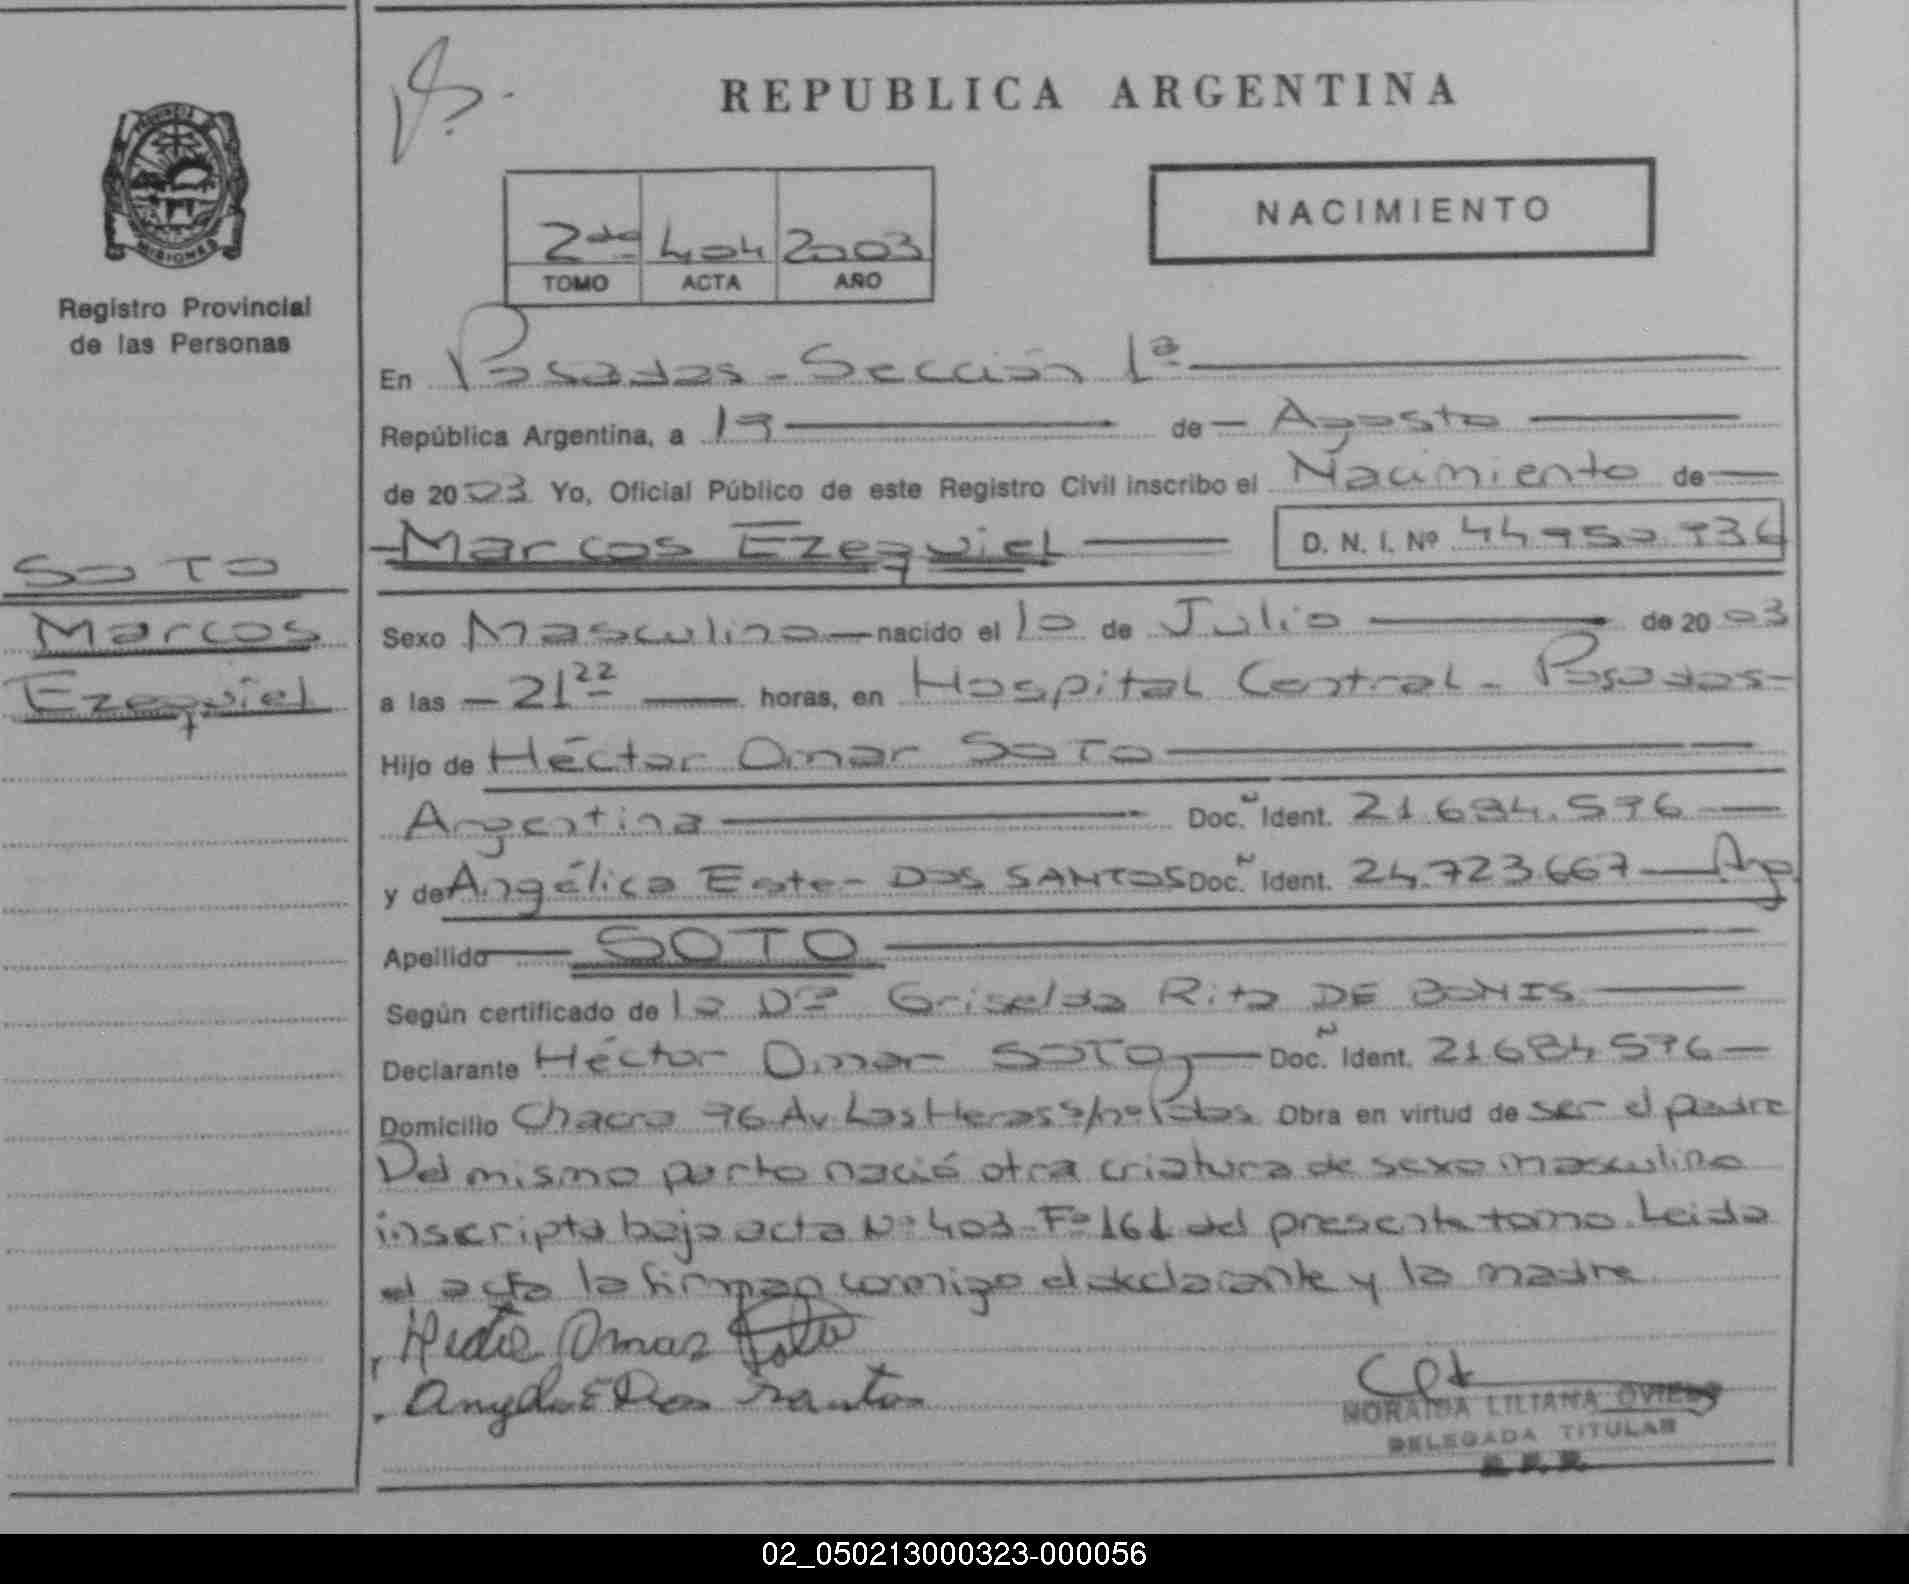 REPUBLICA ARGENTINA
PROVINCIA D
MISIONES
Registro Provincial
de las Personas
2do 404 2003
TOMO ACTA AÑO
NACIMIENTO
En Posadas - Sección 1ª
República Argentina, a 19 de Agosto
de 2003 Yo, Oficial Público de este Registro Civil inscribo el Nacimiento de
Marcos Ezequiel D. N. I. Nº
SOTO
Marcos
Ezequiel
Sexo Masculino nacido el 10 de Julio de 2003
a las - 21 22 horas, en Hospital Central - Posadas -
Hijo de Héctor Omar SOTO
Argentina Doc. Ident.
y de Angélica Ester DOS SANTOS Doc. Ident. 24.723.667 Arg.
Apellido SOTO
Según certificado de la Dra Griselda Rita DE BONIS
Declarante Héctor Omar SOTO Doc. Ident.
Domicilio Chacra 96 Av. Las Heras s/nº Pdas. Obra en virtud de ser el padre
Del mismo parto nació otra criatura de sexo masculino
inscripta bajo acta Nº 403 - Fº 161 del presente tomo. Leida
el acta la firman conmigo el declarante y la madre
Omar Soto
Dos Santos
NORAIDA LILIANA OVIEDO
DELEGADA TITULAR
02_050213000323-000056